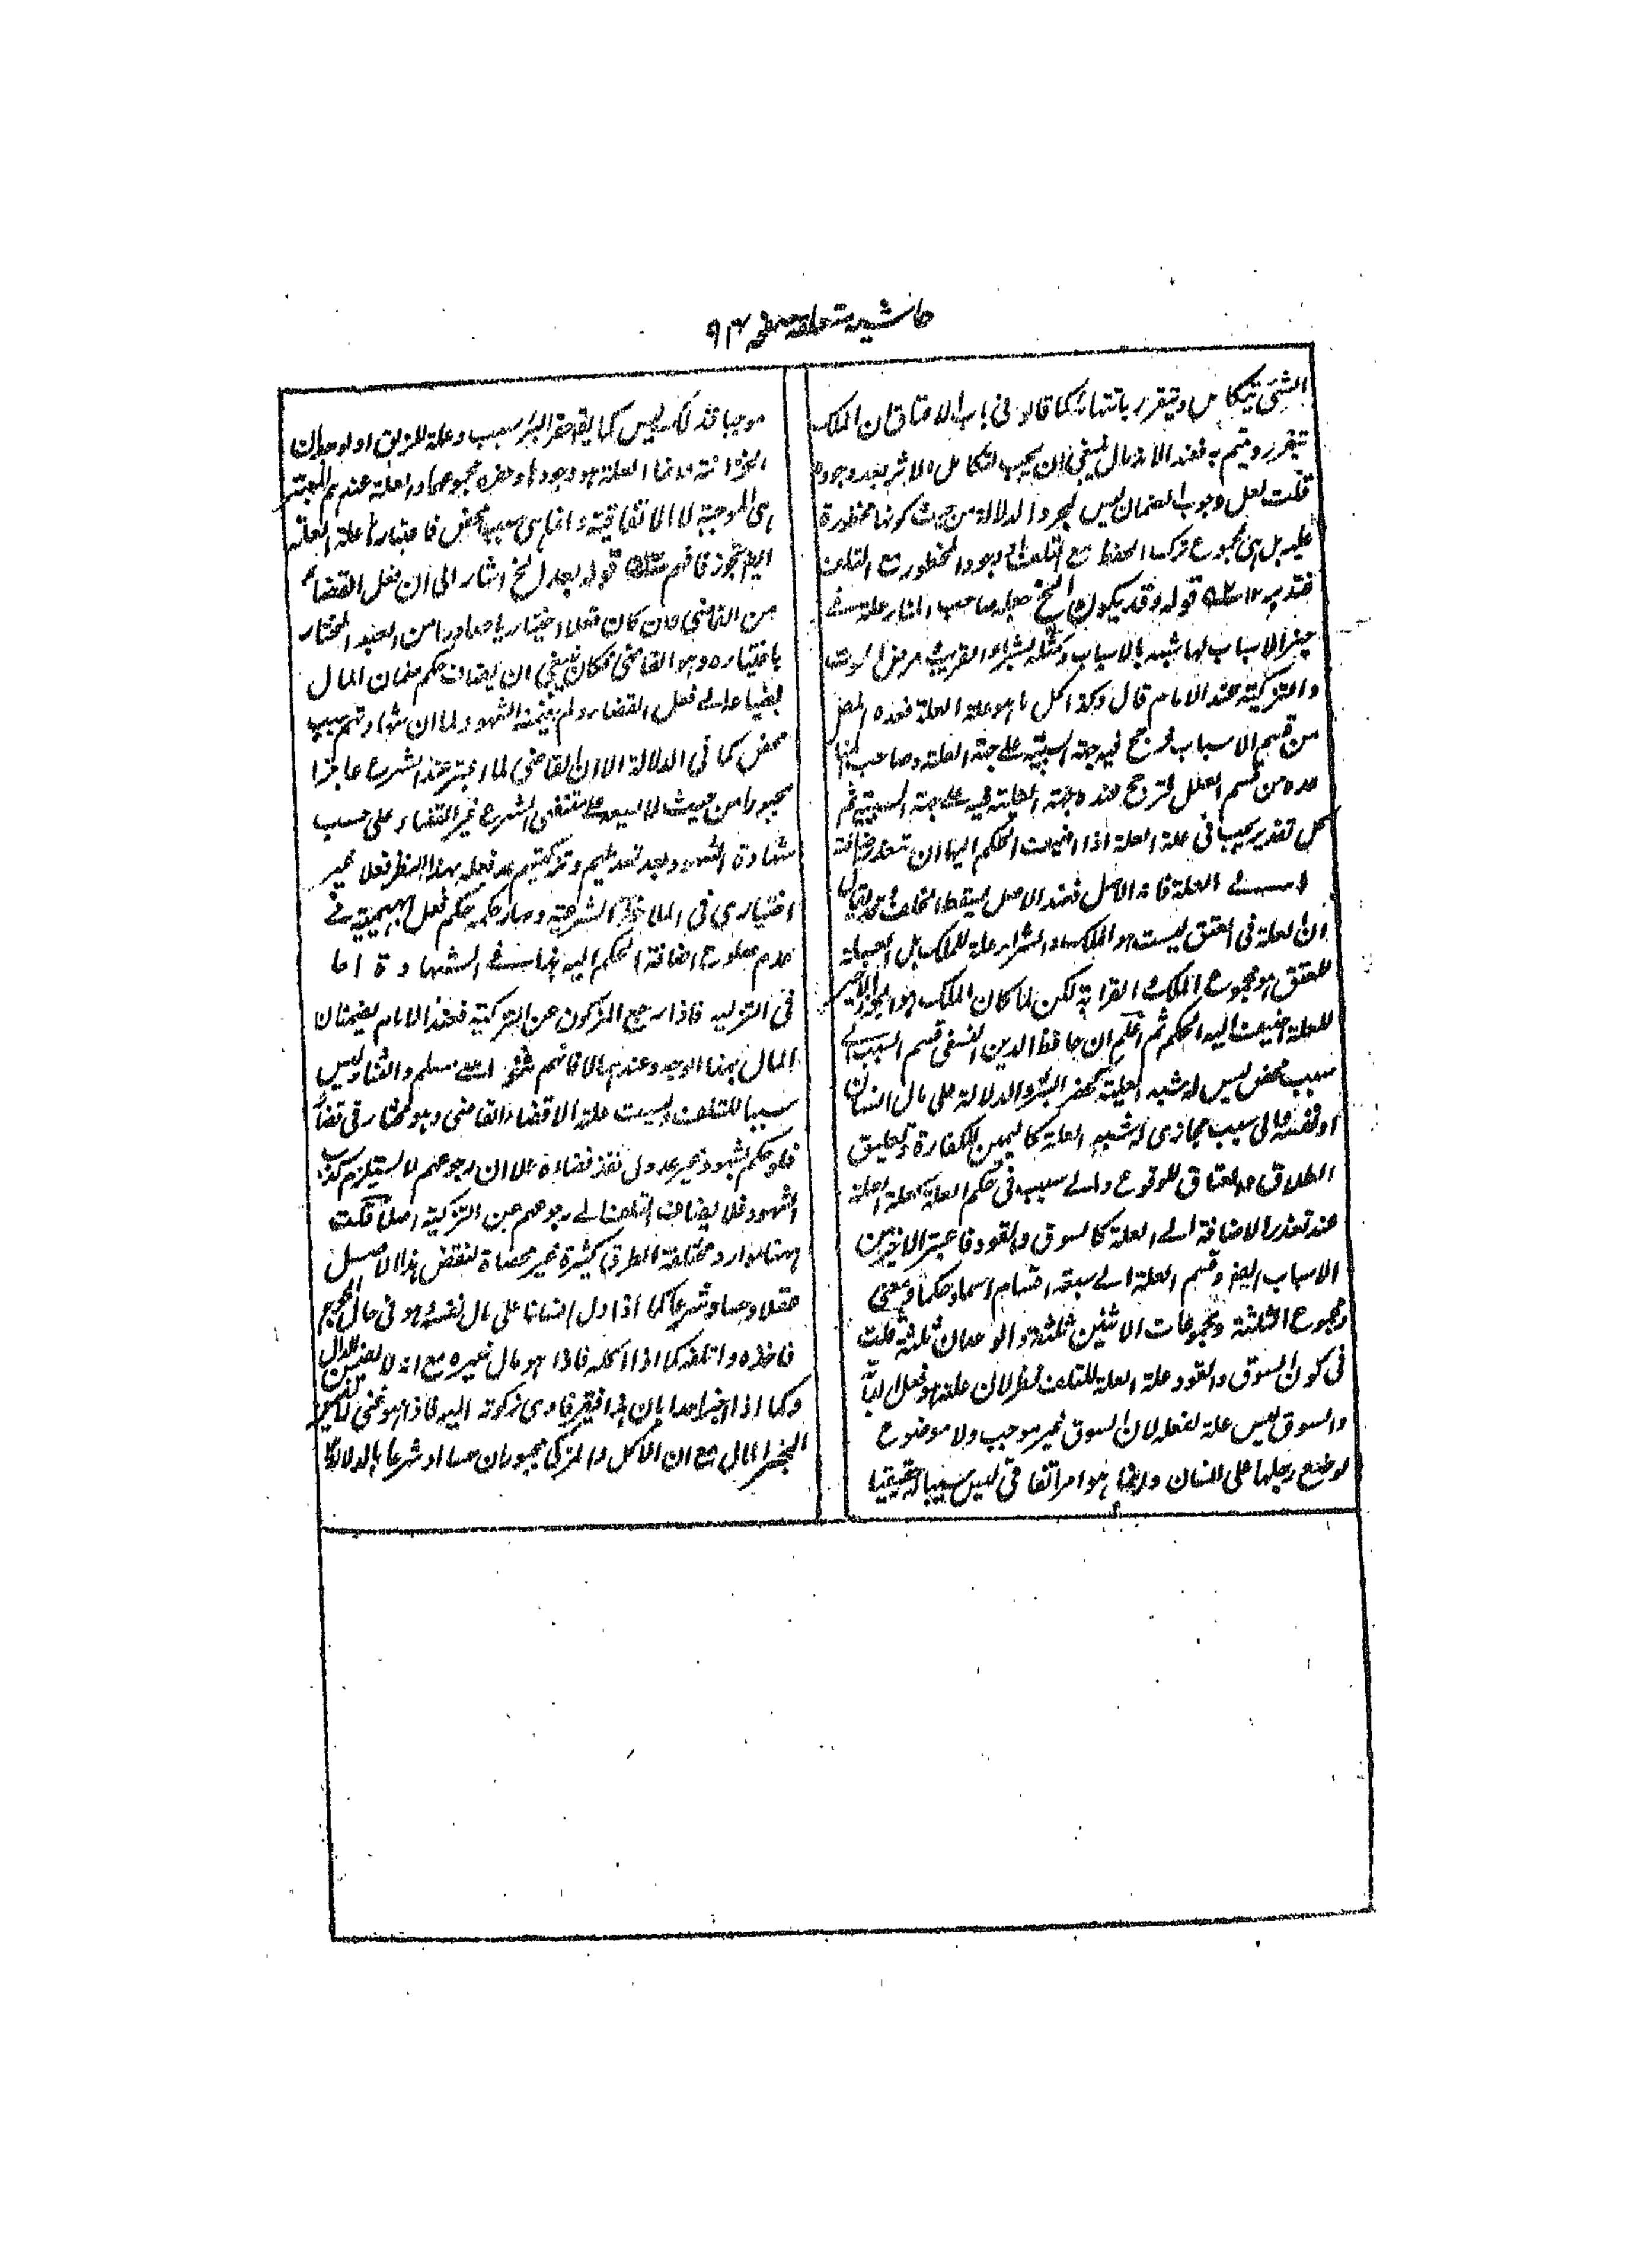 حاشیہ متعلقہ صفحہ ۹۴
الشئ يتكامل ويتقرر بانتهائه كما قالوا فى باب الاعتاق ان الملك
يتقرر ويتم به فعند الاندمال ينبغى ان يجب لتكامل الاثر بعد وجوده
قلت لعل وجوب الضمان ليس لمجرد الدلالة من حيث كونها محظورة
عليه بل هى مجموع ترك الحفظ مع التلف اى وجود المحظور مع التلف
فتدبر ١٢ قوله وقد يكون الخ جعل صاحب المنار علة فى
حيز الاسباب لها شبه بالاسباب ومثله بشراء القريب ومرض الموت
والتزكية عند الامام قال وكذا كل ما هو علة العلة فعنده المص
من قسم الاسباب فرجح فيه جهة السببية على جهة العلة وصاحب المنار
عده من قسم العلل فترجح عنده جهة العلية فيه على جهة السببية ثم
كل تقدير يجب فى علة العلة اذا اضيف الحكم اليها ان تتعذر اضافة
الى العلة فانه الاصل فعند الاصل يسقط الخلف
ان العلة فى العتق ليست هو الملك والشراء علة للملك بل العلة
للعتق هو مجموع الملك والقرابة لكن لما كان الملك هو الجزء الاخير
للعلة اضيف اليه الحكم ثم اعلم ان حافظ الدين النسفى قسم السبب الى
سبب محض ليس له شبه العلية كحفر البئر والدلالة على مال انسان
او نفسه والى سبب مجازى له شبه العلة كاليمين للكفارة وتعليق
الطلاق والعتاق للوقوع والى سبب فى حكم العلة كعلة العلة
عند تعذر الاضافة الى العلة كالسوق والقود فاعتبر الاخيرين
الاسباب ايضا وقسم العلة الى سبعة اقسام اسما وحكما ومعنى
ومجموع الثلثة ومجموعات الاثنين ثلثة والوحدان ثلثة قلت
فى كون السوق والقود علة العلة للتلف نظر لان علته هو فعل الدابة
والسوق ليس علة لفعله لان السوق غير موجب ولا موضوع
لوضع رجلها على انسان وانما هو امر اتفاقى ليس سببا حقيقيا
موجبا قد لك ليس كما يقه حفر البئر سبب وعلة للزلق او لوجدان
انما العلة هو وجود مجموعهما والعلة عندهم المعتبر
هى الموجبة لا الاتفاقية وانما هى سبب محض فاعتبارها علة العلة
ايضا تجوز فافهم قوله بعد الخ اشار الى ان فعل القضاء
من القاضى وان كان فعلا اختياريا صادرا من العبد المختار
باختياره وهو القاضى فكان ينبغى ان يضاف حكم ضمان المال
ايضا على فعل القضاء ولم يضمنه الشهود ولما ان شهادتهم سبب
محض كما فى الدلالة الا ان القاضى لما اعتبر عند الشرع عاجزا
مجبورا من حيث لا يسعه على مقتضى الشرع غير القضاء على حسب
شهادة الشهود وبعد تعديلهم وتزكيتهم عد فعله بهذا النظر فعلا غير
اختيارى فى الملاحظة الشرعية وصار حكمه حكم فعل البهيمة فى
عدم صلوح اضافة الحكم اليه هذا فى الشهادة اما
فى التزكية فاذا رجع المزكون عن التزكية فعند الامام يضمنان
المال بهذا الوجه وعندهما لا فانهم شئ اى مسلم والثناء ليس
سببا للتلف وليست علة الا قضاء القاضى وهو مختار فى قضائه
فلو حكم بشهود غير عدول نفذ قضاءه الا ان رجوعهم لا يستلزم كذب
الشهود فلا يضاف التلف الى رجوعهم عن التزكية اصلا قلت
ههنا موارد مختلفة الطرق كثيرة غير محصاة لنقض هذا الاصل
عقلا وحسا وشرعا كما اذا دل انسانا على مال نفسه وهو فى حال
فاخذه واتلفه كما اذا اكله فاذا هو مال غيره مع انه لا يضمن الدال
وكما اذا اخبر احدا بان هذا فقير فادى زكوته اليه فاذا هو غنى
المخبر المال مع ان الاكل والمزكى مجبوران حسا وشرعا بالدلالة